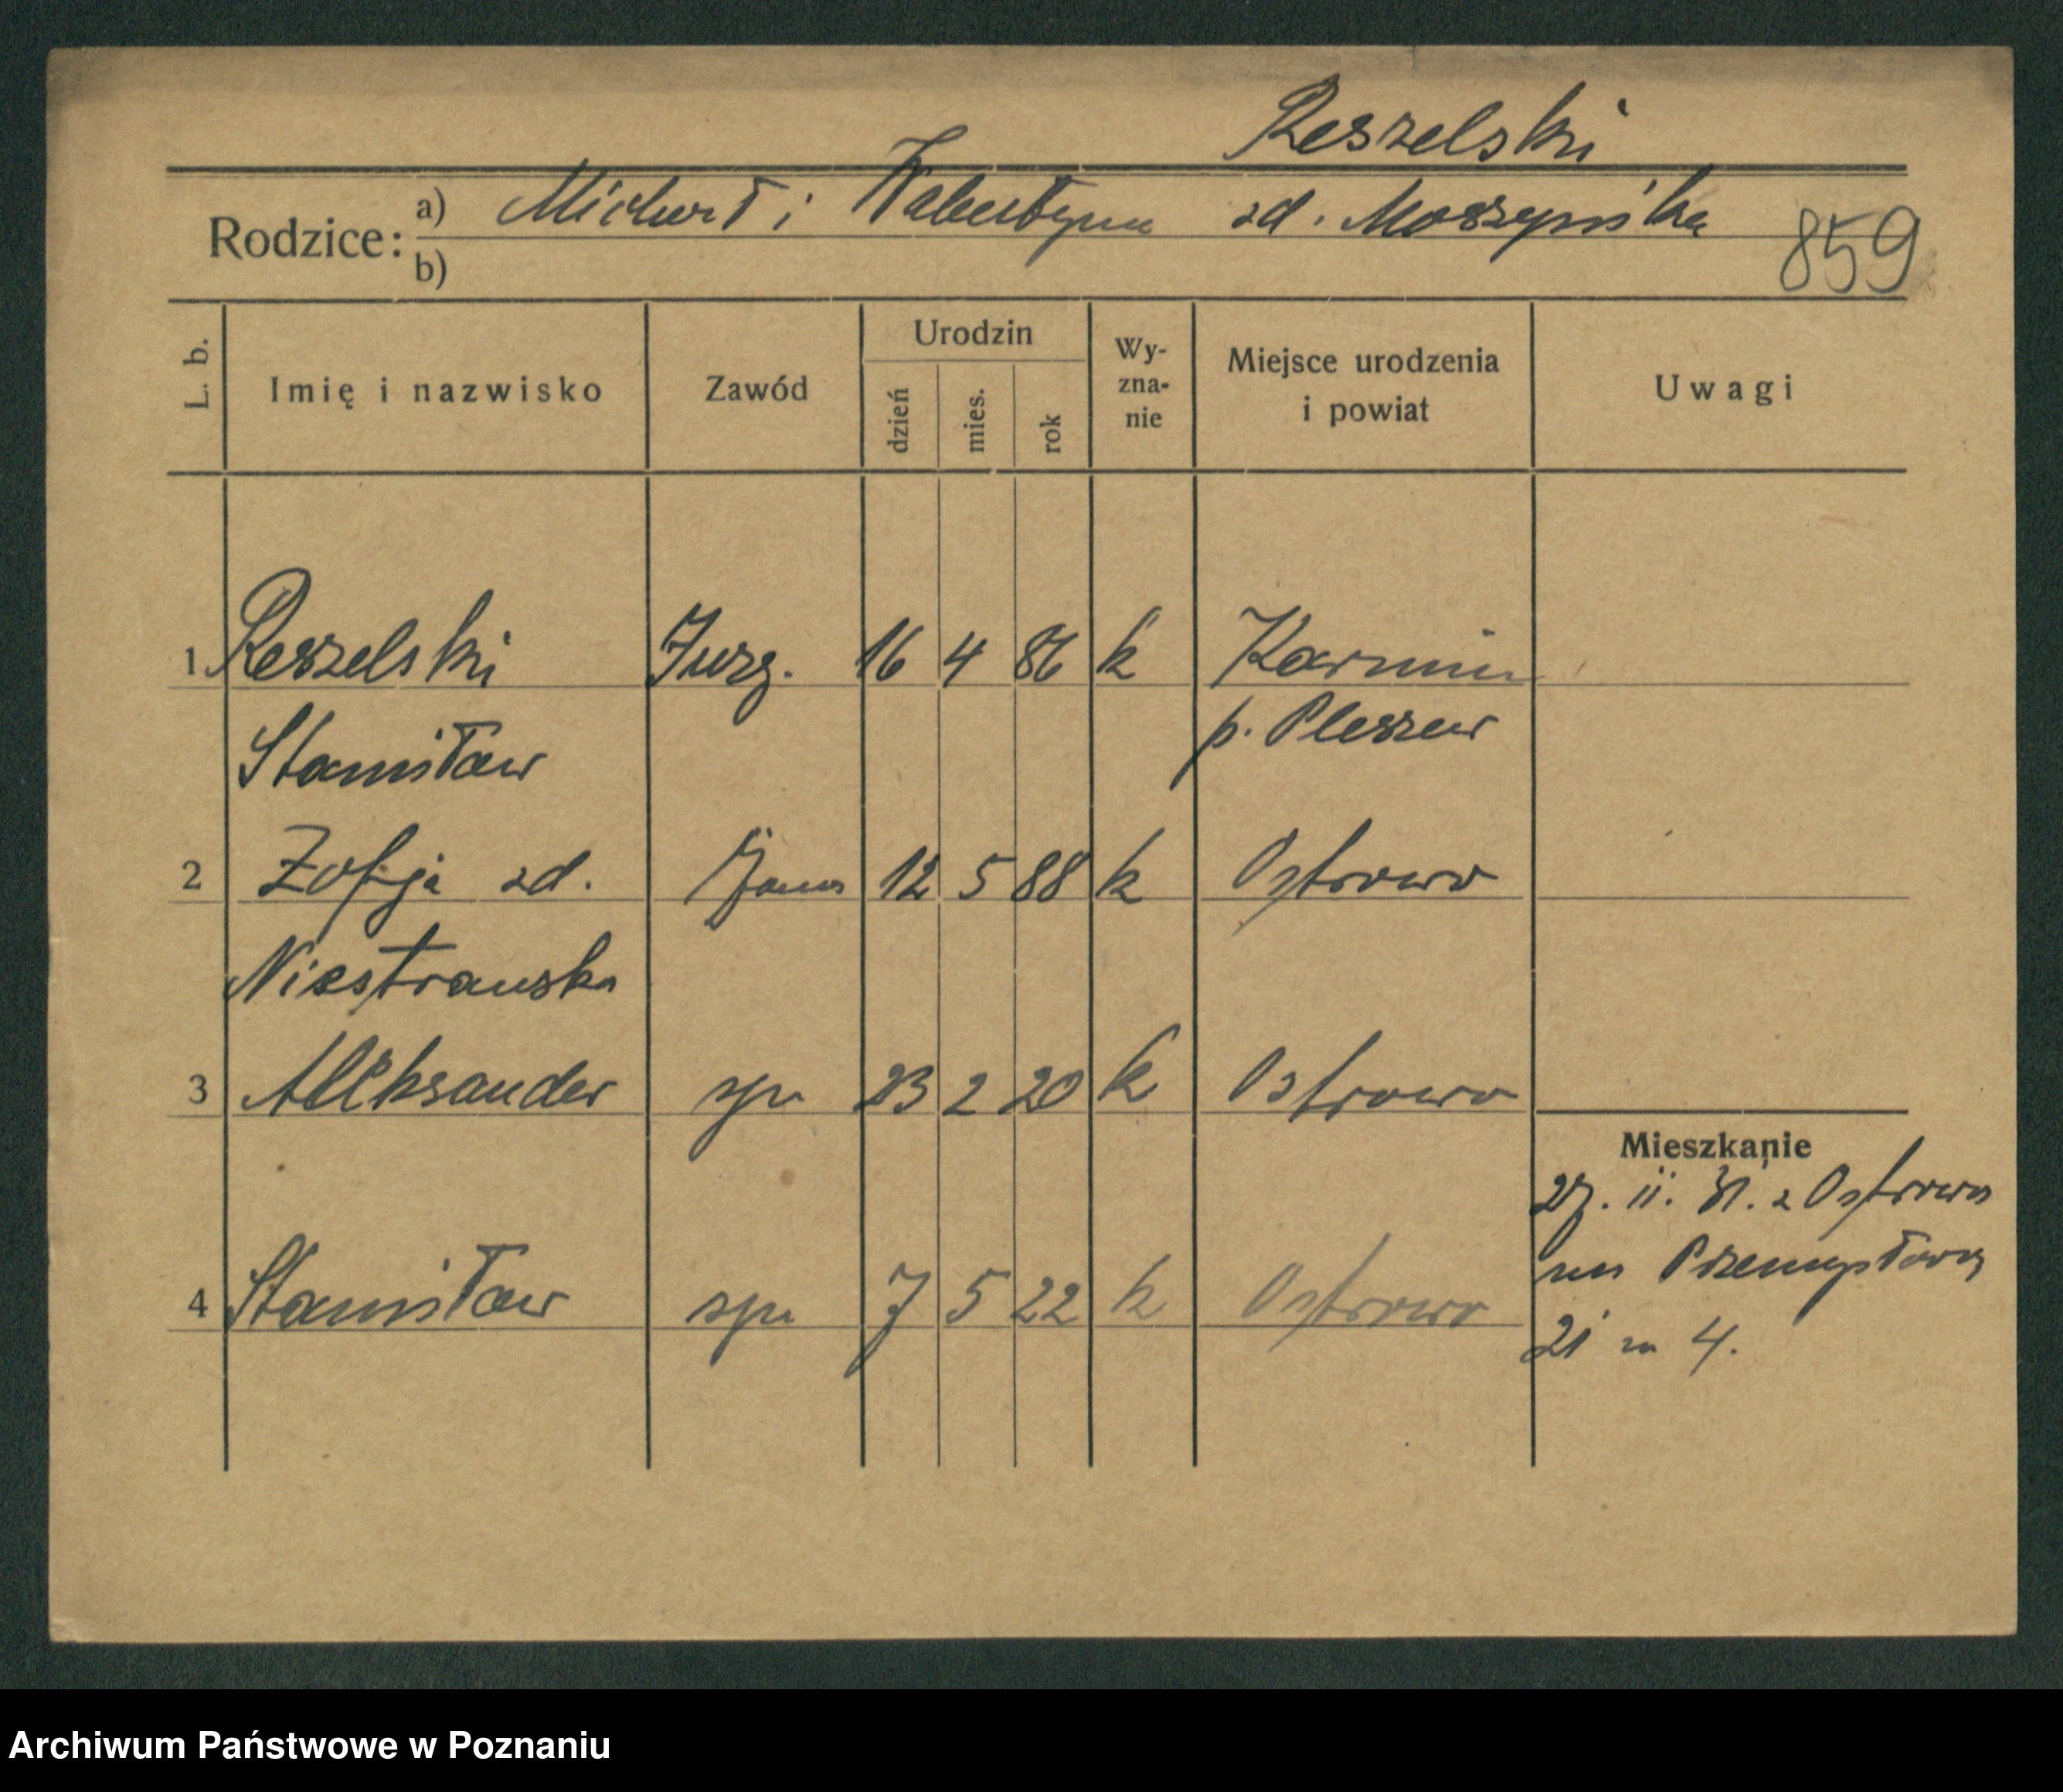 Reszelski
Rodzice: a) Michał i Walentyna zd. Moszyńska
b)
859
L. b. Imię i nazwisko Zawód Urodzin dzień mies. rok Wy-zna-nie Miejsce urodzenia i powiat Uwagi
1 Reszelski 16 4 86 k Karmin
Stanisław p. Pleszew
2 Zofja zd. 12 5 88 k Ostrowo
Niestrawska
3 Aleksander 23 2 20 k Ostrowo
Mieszkanie
27. 11. 31. z Ostrowa
na Przemysłową
4 Stanisław 7 5 22 k Ostrowo
21 m 4.
Archiwum Państwowe w Poznaniu